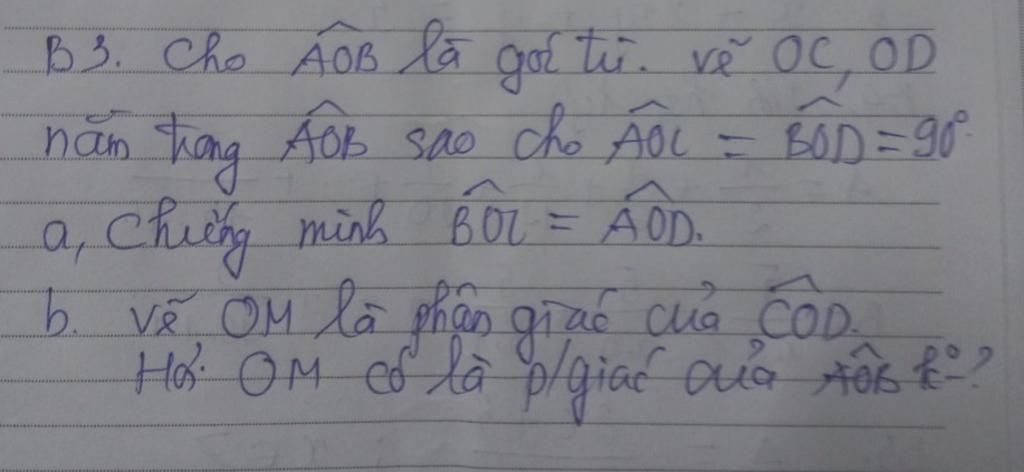 B3. Cho AÔB là góc tù. vẽ OC, OD
nằm trong AÔB sao cho AÔC = BÔD = 90°.
a, Chứng minh BÔC = AÔD.
b. vẽ OM là phân giác của CÔD.
Hỏi OM có là p/giác của AÔB k°?